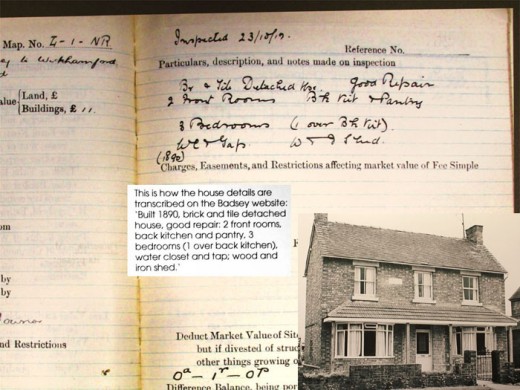 Inspected 23/10/
Map. No. I-1-NR
Reference No.
Particulars, description, and notes made on inspection
Br & Tile Detached Hse. Good Repair
2 Front Rooms Bk Kit & Pantry
Land, £
Buildings, £ 11.
3 Bedrooms (1 over Bk Kit).
WC & Tap. W & I Shed.
(1890)
Charges, Easements, and Restrictions affecting market value of Fee Simple
This is how the house details are
transcribed on the Badsey website:
'Built 1890, brick and tile detached
house, good repair: 2 front rooms,
back kitchen and pantry, 3
bedrooms (1 over back kitchen),
water closet and tap; wood and
iron shed.'
by
by
nd Restrictions
Deduct Market Value of Sit
but if divested of struc
other things growing o
0a - 1r - 0p
Difference Balance, being por